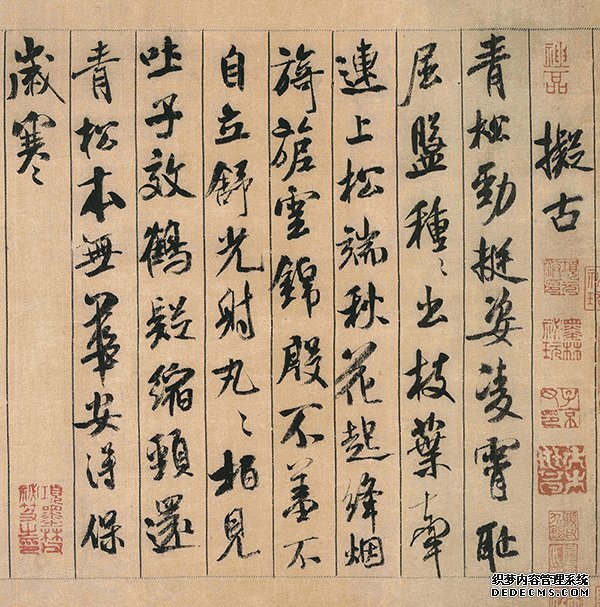 神品
擬古
青松勁挺姿凌霄恥
屈盤種〻出枝葉牽
連上松端秋花起絳烟
旖旎雲錦殷不羞不
自立舒光射丸〻柏見
吐子效鶴疑縮頸還
青松本無華安得保
歲寒
织梦内容管理系统
DEDECMS.COM